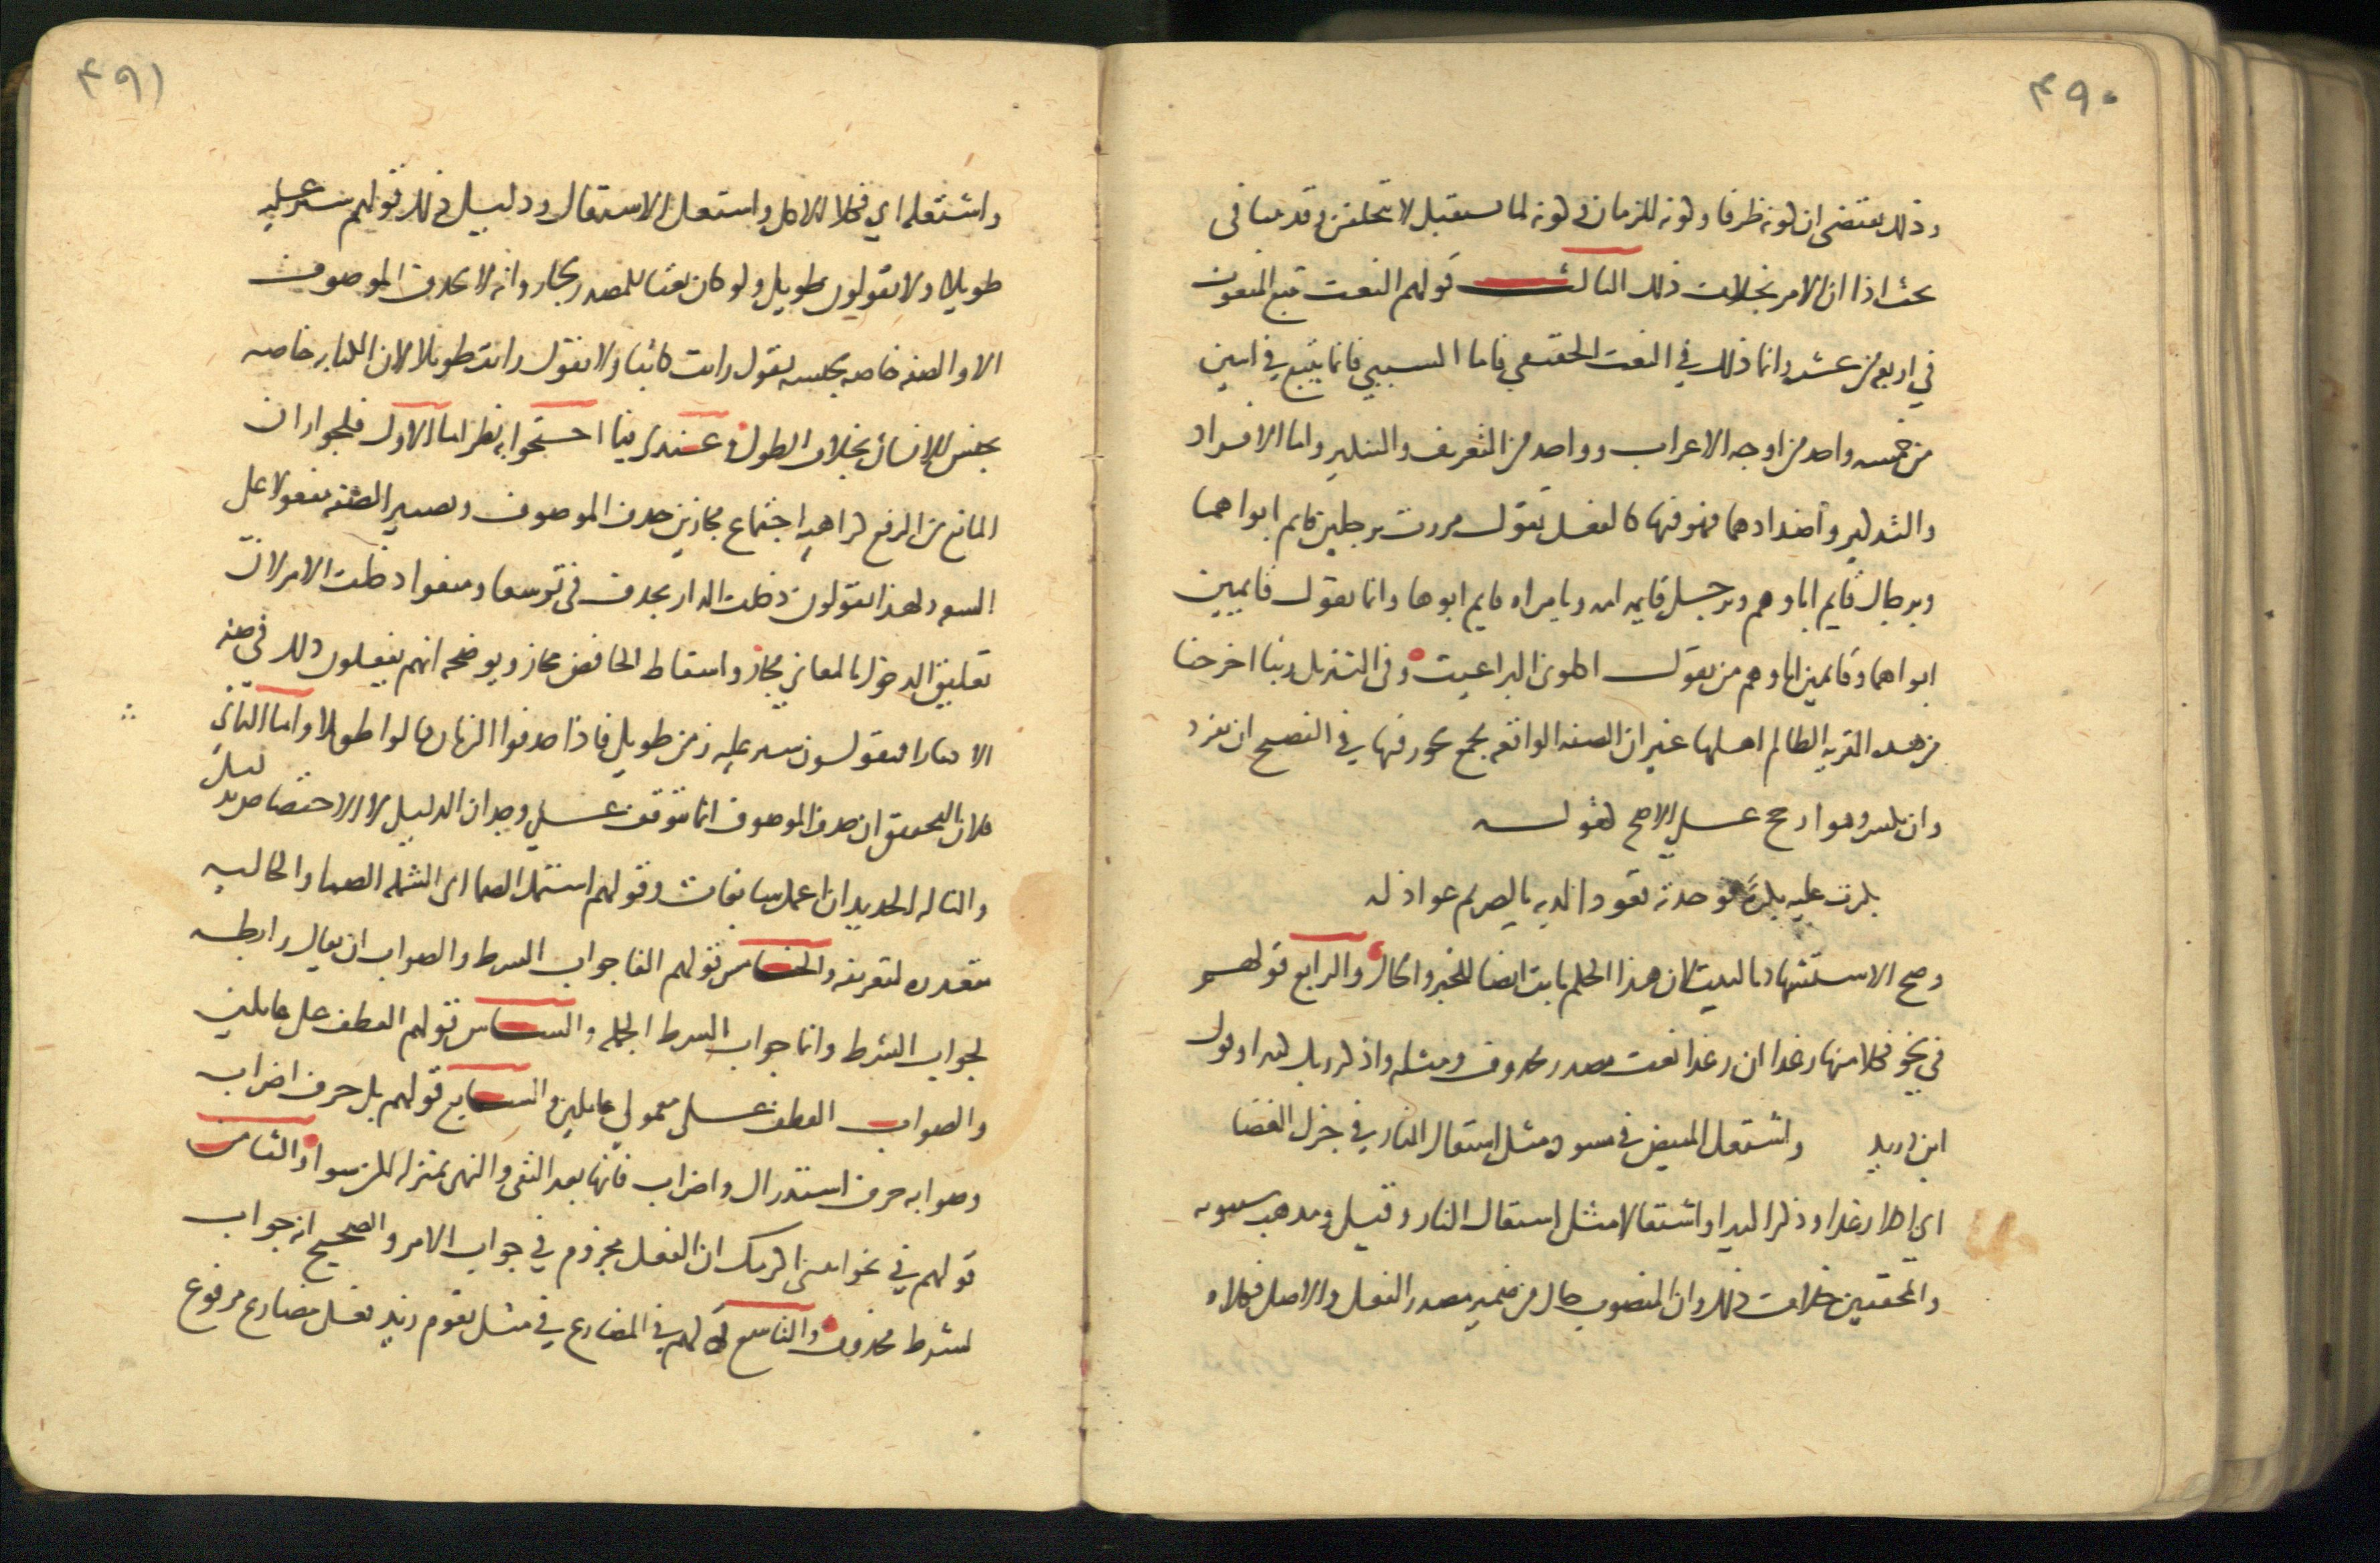 ۴۹۰
وذلك يقتضى ان كونه ظرفا وكونه للزمان وكونه لما يستقبل لا تتخلفن وقد بينا فى
بحث اذا ان الامر بخلاف ذلك الثالث قولهم النعت يتبع المنعوت
في اربعه من عشره وانما ذلك في النعت الحقيقي فاما السببي فانما يتبع في اثنين
من خمسه واحد من اوجه الاعراب وواحد من التعريف والتنكير واما الافراد
والتذكير واضدادهما فهو فيها كالفعل تقول مررت برجلين قايم ابواهما
وبرجال قايم اباوهم وبرجل قايمه امه وبامراه قايم ابوها وانما يقول قايمين
ابواهما وقايمين اباوهم من يقول اكلونى البراغيث وفى التنزيل ربنا اخرجنا
من هذه القريه الظالم اهلها غير ان الصفه الواقعه بجمع يجوز فيها في الفصيح ان تفرد
وان تكسر وهو ارجح على الاصح كقوله
بكرت عليه بكرة فوجدته قعودا لديه بالصريم عواذله
وصح الاستشهاد بالبيت لان هذا الحكم ثابت ايضا للخبر والحال والرابع قولهم
في نحو فكلا منها رغدا ان رغدا نعت مصدر محذوف ومثله واذكر ربك كثيرا وقول
ابن دريد واشتعل المبيض في مسوده مثل اشتعال النار في جزل الغضا
اى اكلا رغدا وذكرا كثيرا واشتعالا مثل اشتعال النار وقيل ومذهب سيبويه
والمحققين خلاف ذلك وان المنصوب حال من ضمير مصدر الفعل والاصل فكلاه
۴۹۱
واشتعله اي فكلا الاكل واشتعل الاشتعال ودليل ذلك قولهم سير عليه
طويلا ولا يقولون طويل ولو كان نعتا للمصدر لجاز وانه لا يحذف الموصوف
الا والصفه خاصه بجنسه تقول رايت كاتبا ولا تقول رايت طويلا لان الكتابه خاصه
بجنس الانسان بخلاف الطول وعندى فيما احتجوا به نظر اما الاول فلجواز ان
المانع من الرفع كراهيه اجتماع مجازين حذف الموصوف وتصيير الصفه مفعولا على
السعه ولهذا يقولون دخلت الدار بحذف فى توسعا ومنعوا دخلت الامر لان
تعليق الدخول بالمعاني مجاز واسقاط الخافض مجاز ويوضحه انهم يفعلون ذلك في صفه
الاحيان فيقولون سير عليه زمن طويل فاذا حذفوا الزمان قالوا طويلا واما الثاني
فلان التحقيق ان حذف الموصوف انما يتوقف على وجدان الدليل لا الاختصاص بدليل
والنا له الحديد ان اعمل سابغات وقولهم اشتمل الصما اى الشمله الصما والحاليه
متعذره لتعريفه والخامس قولهم الفا جواب الشرط والصواب ان يقال رابطه
لجواب الشرط وانما جواب الشرط الجمله والسادس قولهم العطف على عاملين
والصواب العطف على معمولي عاملين والسابع قولهم بل حرف اضراب
وصوابه حرف استدراك واضراب فانها بعد النفى والنهى بمنزله لكن سواء والثامن
قولهم في نحو ائتنى اكرمك ان الفعل مجزوم في جواب الامر والصحيح انه جواب
لشرط محذوف والتاسع قولهم في المضارع في مثل يقوم زيد فعل مضارع مرفوع